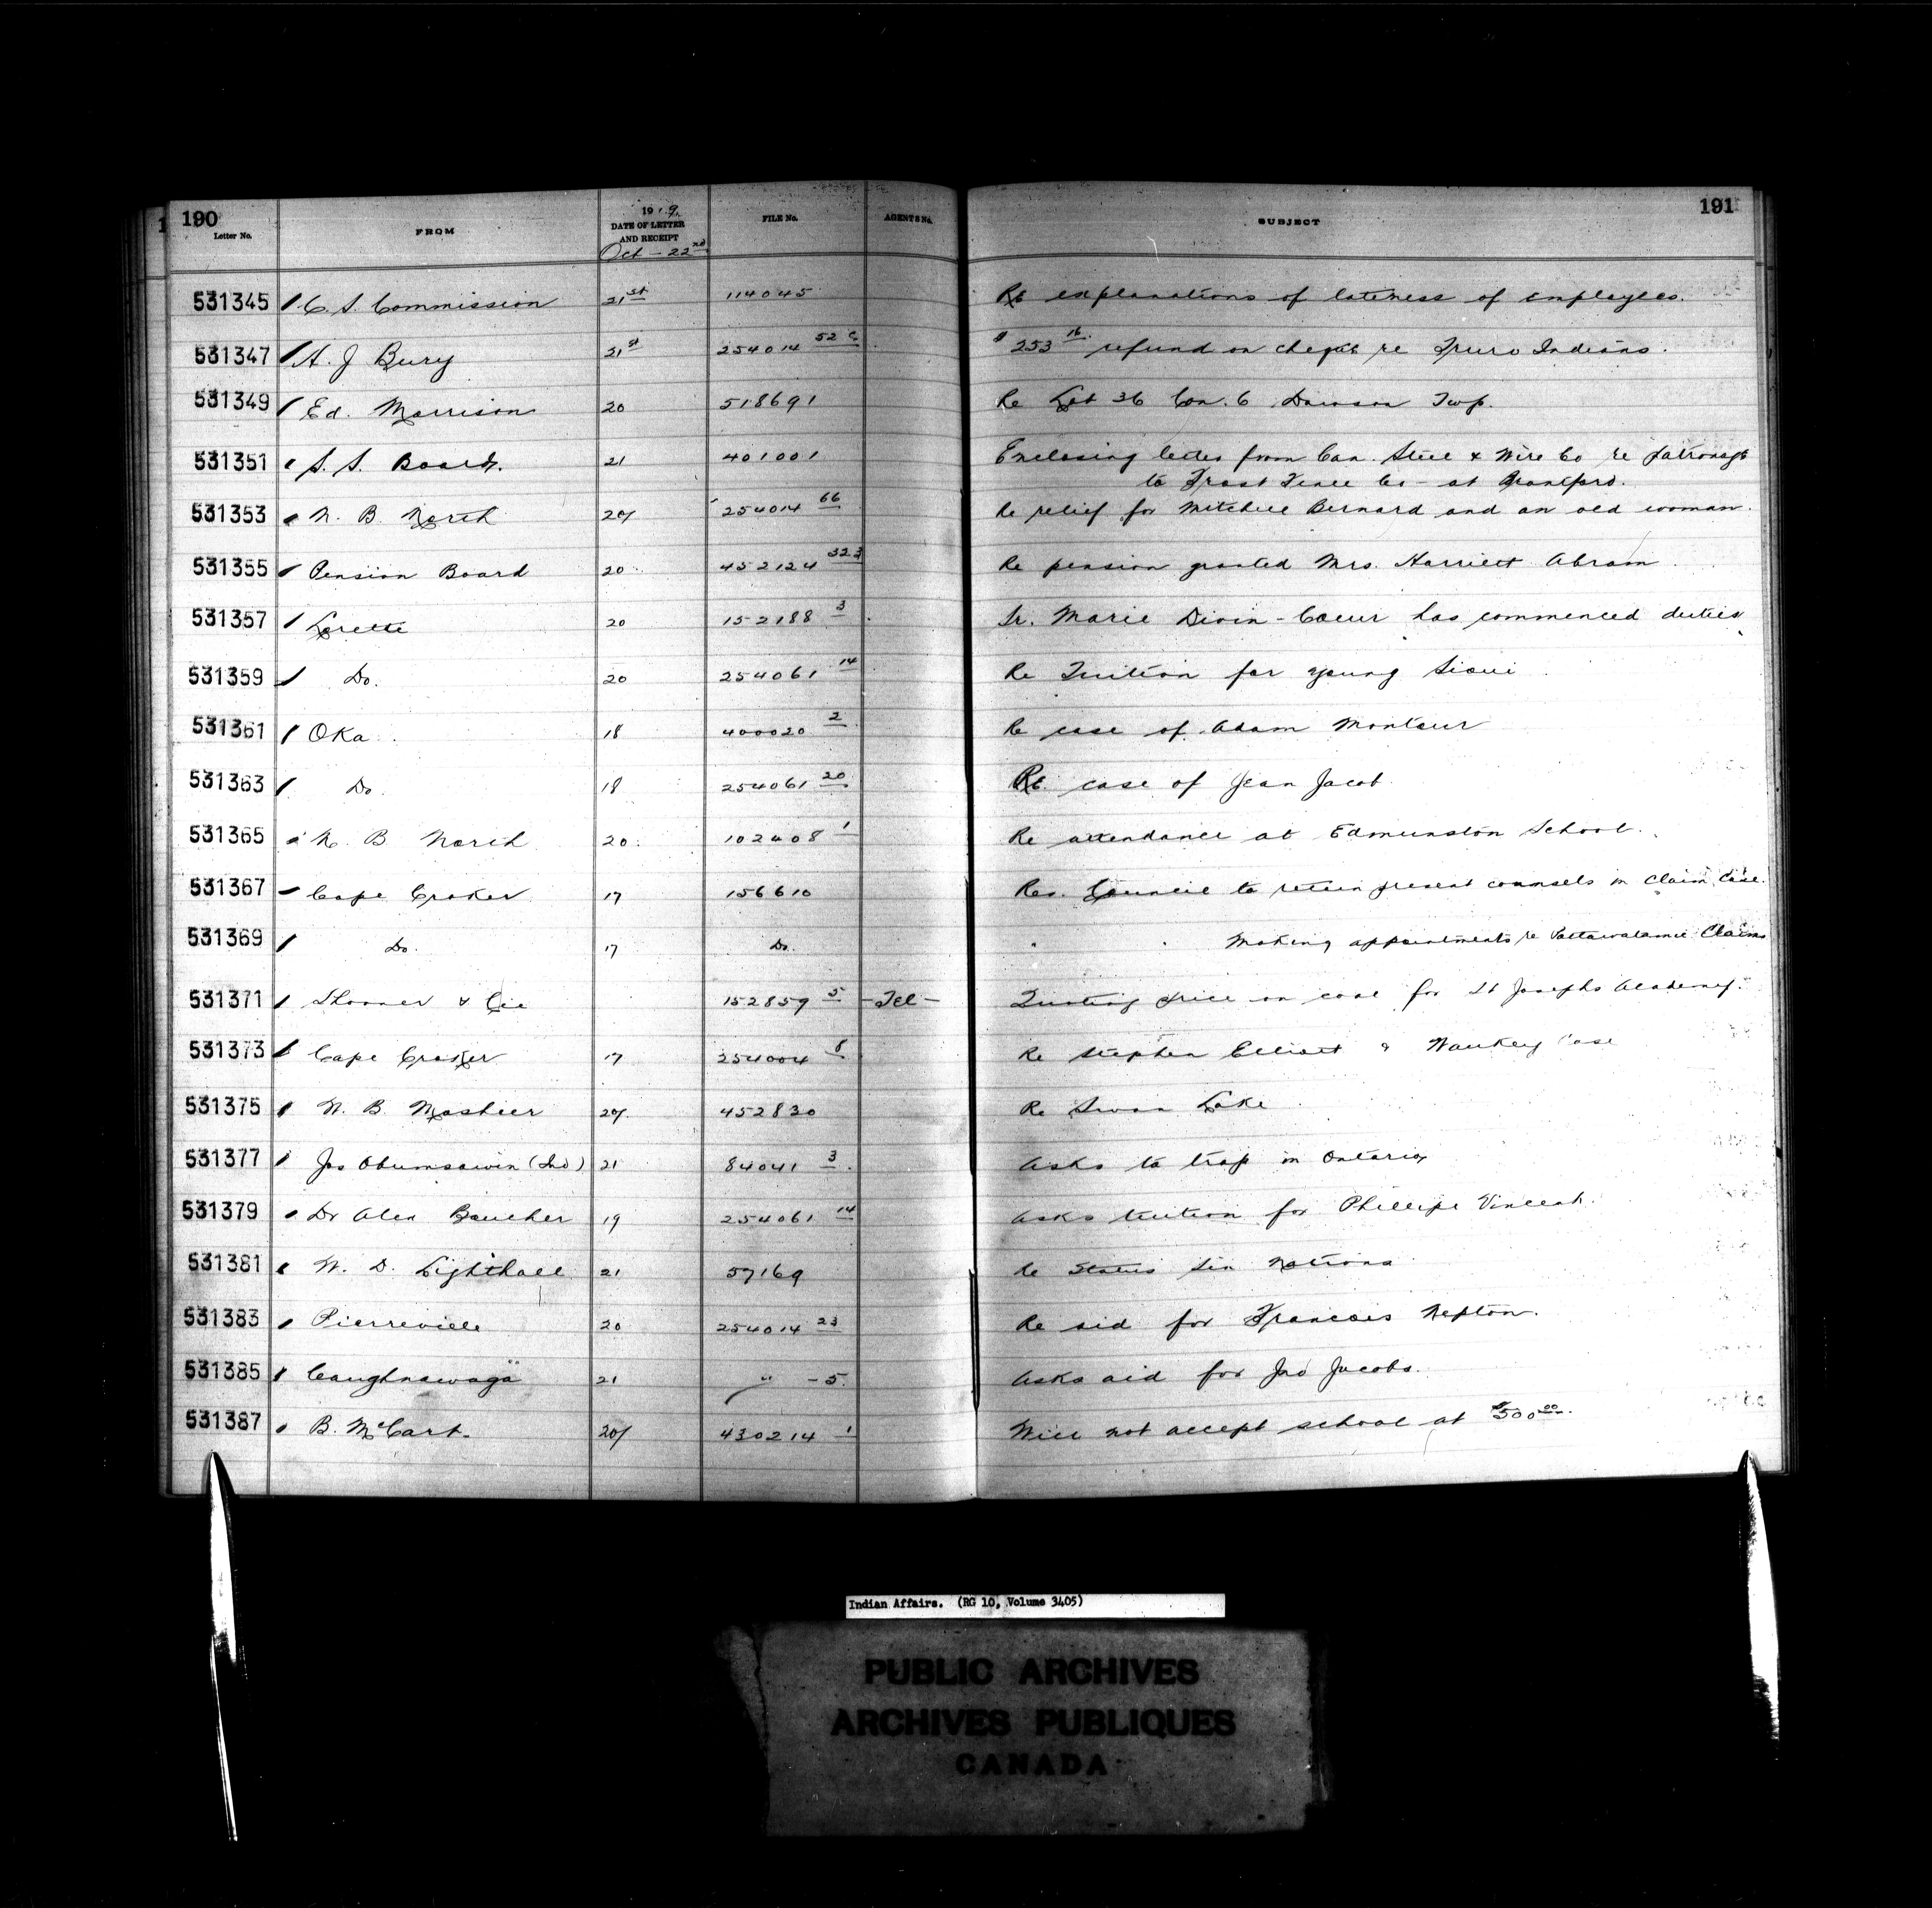 190
191
Letter No. FROM 1919 DATE OF LETTER AND RECEIPT FILE No. AGENTS No. SUBJECT
Oct - 22nd
531345 C. S. Commission 21st 114045 Re explanations of lateness of employees.
531347 A. J Bury 21st 254014 52 c $253 16 refund on cheque re Truro Indians.
531349 Ed. Morrison 20 518691 Re Lot 36 Con. 6 Dawson Twp.
531351 S. S. Board. 21 401001 Enclosing letter from Can. Steel & Wire Co re patronage
to Frost Fence Co - at Brantford.
531353 N. B. North 20/ 254014 66 Re relief for Mitchell Bernard and an old woman.
531355 Pension Board 20 452124 323 Re pension granted Mrs. Harriett Abram
531357 Lorette 20 152188 3 Sr. Marie Divin-Coeur has commenced duties
531359 Do. 20 254061 14 Re Tuition for young Sioui
531361 Oka 18 400020 2 Re case of Adam Montour
531363 Do. 18 254061 20 Re case of Jean Jacob
531365 N. B North 20 102408 1 Re attendance at Edmunston School.
531367 Cape Croker 17 156610 Res. Council to retain present counsels in Claim Case.
531369 Do. 17 Do. " " Making appointments re Pottawatamie Claims
531371 & Cie 152859 5 -Tel- Quoting price on coal for St Josephs Academy.
531373 Cape Croker 17 254004 8 Re Stephen Elliott & Waukey Case
531375 N. B. 20/ 452830 Re Swan Lake
531377 Jos Obumsawin (Ind) 21 84041 3 Asks to trap in Ontario
531379 Dr Alex Boucher 19 254061 14 Asks tuition for Phillipe Vincent.
531381 W. D. Lighthall 21 57169 Re Status Six Nations
531383 Pierreville 20 254014 23 Re aid for Francois Nepton.
531385 Caughnawaga 21 " -5. Asks aid for Jno Jacobs.
531387 B. McCart. 20/ 430214 1 Will not accept school at $500 00.
Indian Affairs. (RG 10, Volume 3405)
PUBLIC ARCHIVES
ARCHIVES PUBLIQUES
CANADA